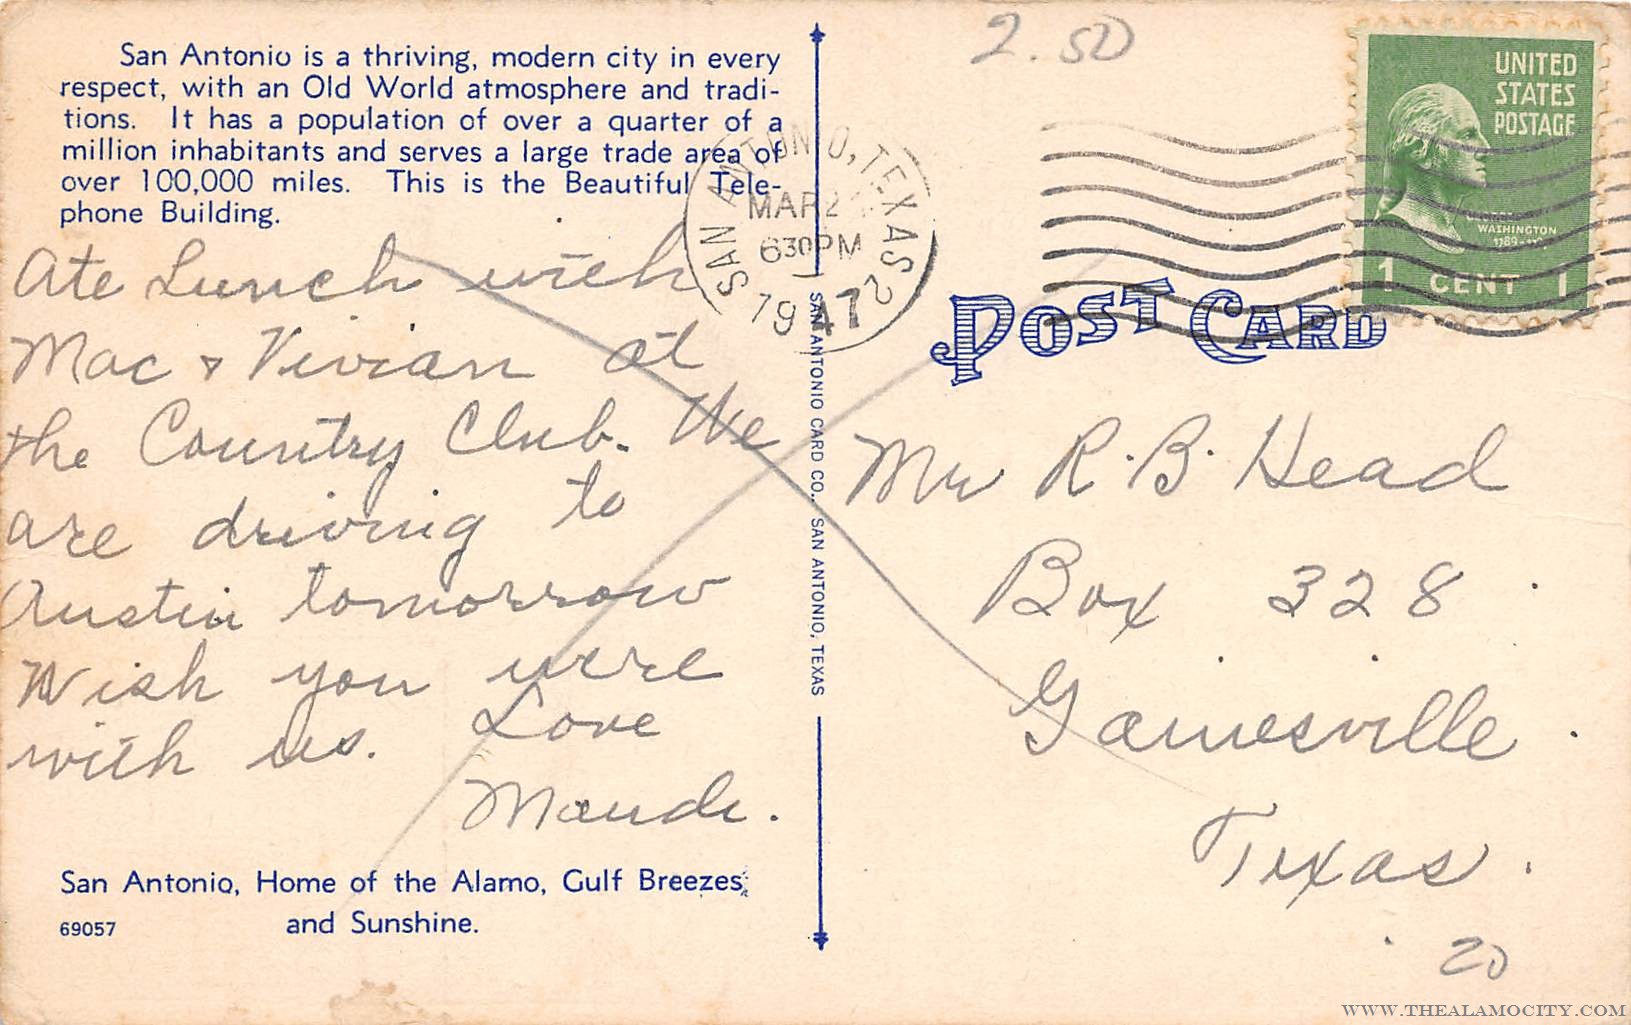 San Antonio is a thriving, modern city in every
respect, with an Old World atmosphere and tradi-
tions. It has a population of over a quarter of a
million inhabitants and serves a large trade area of
over 100,000 miles. This is the Beautiful Tele-
phone Building.
Ate Lunch with
Mac & Vivian at
the Country Club. We
are driving to
Austin tomorrow
Wish you were
with us. Love
Maude.
San Antonio, Home of the Alamo, Gulf Breezes,
and Sunshine.
69057
SAN ANTONIO CARD CO., SAN ANTONIO, TEXAS
2.50
SAN ANTONIO, TEXAS 2
MAR 2
630 PM
1947
UNITED
STATES
POSTAGE
WASHINGTON
1 CENT 1
POST CARD
Mr R. B. Head
Box 328
Gainesville
Texas.
20
WWW.THEALAMOCITY.COM